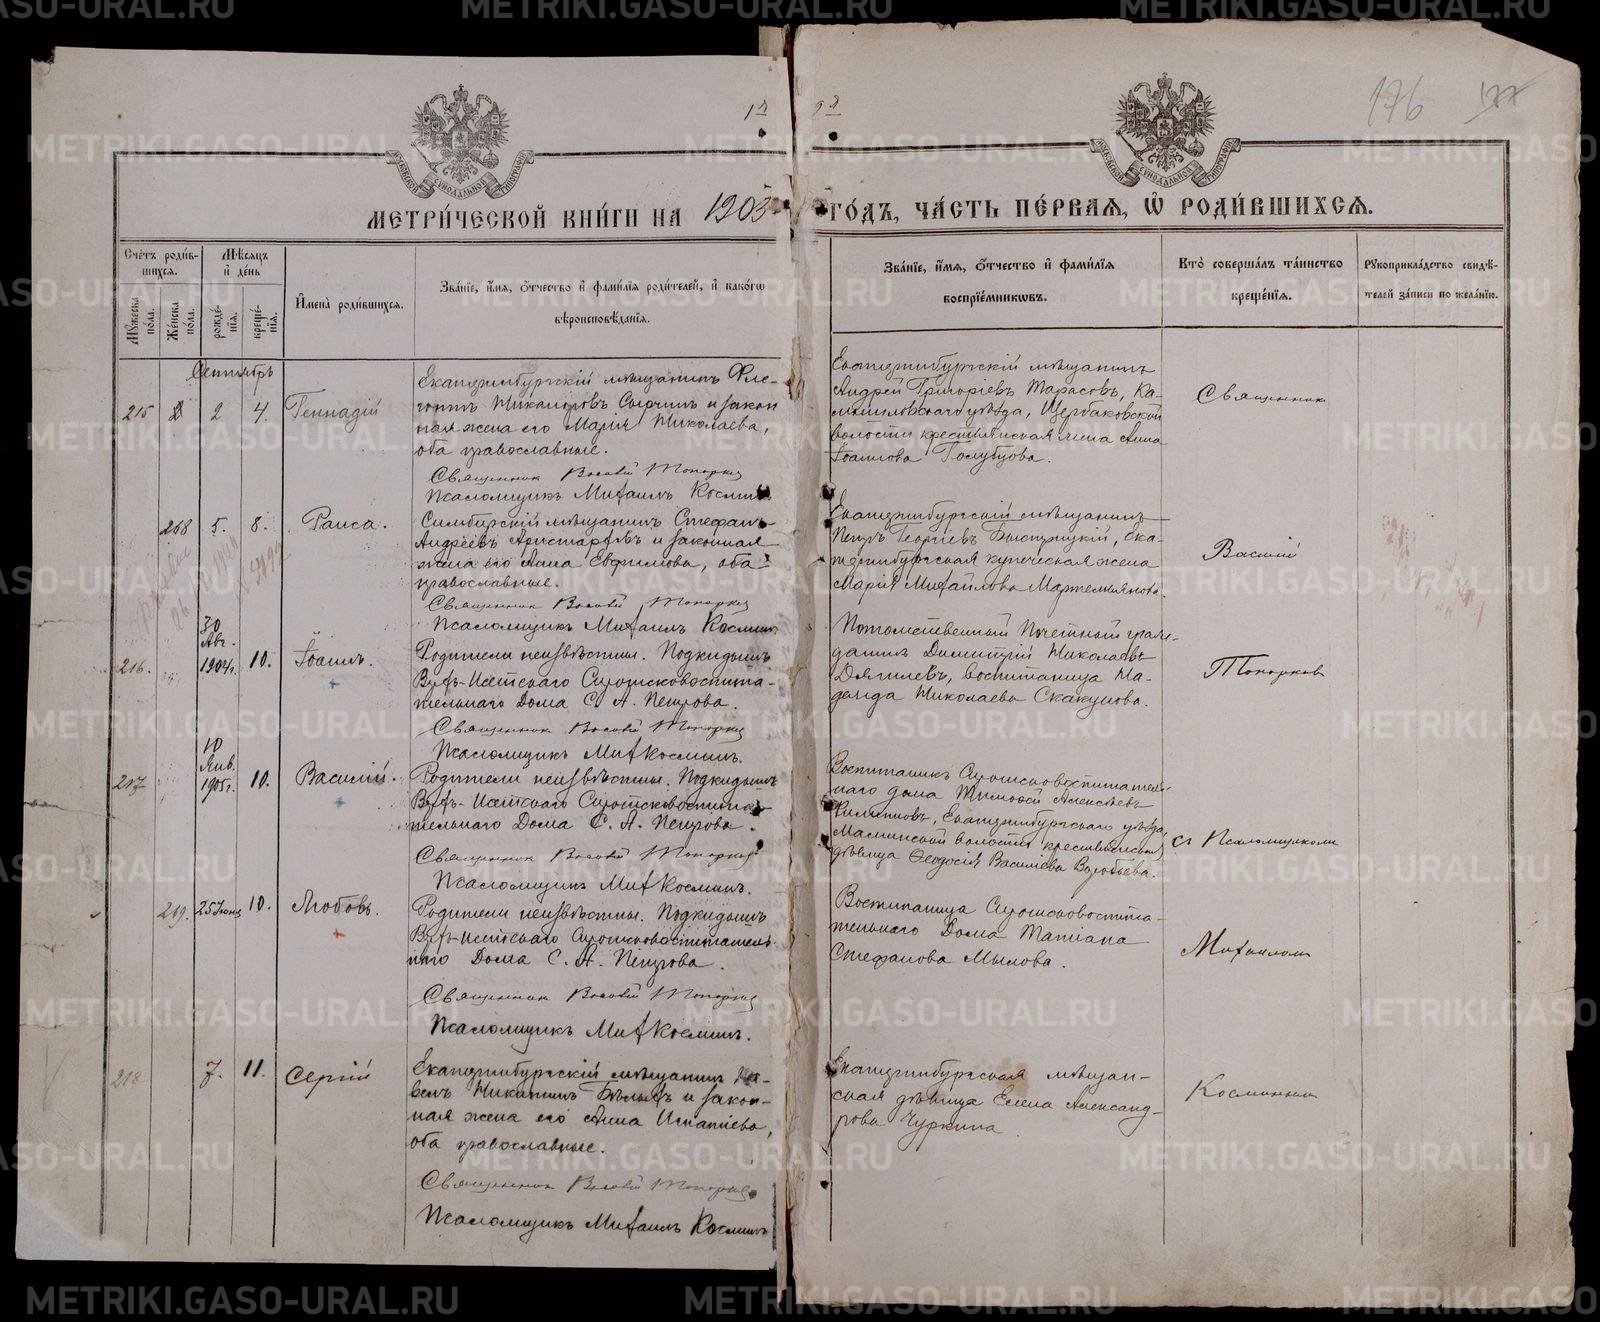 176
МЕТРИ́ЧЕСКОЙ КНИ́ГИ НА 1905 ГО́ДЪ, ЧА́СТЬ ПЕ́РВАЯ, Ѡ҆ РОДИ́ВШИХСЯ.
Сче́тъ роди́в-
шихся.
Мꙋ́жеска пола.
Же́нска пола.
Мѣ́сяцъ
и҆ де́нь
рожде́нїя.
креще́нїя.
И҆мена̀ роди́вшихся.
Зва́нїе, и҆́мя, ѻ҆́тчество и҆ фами́лїя роди́телей, и҆ како́гѡ
вѣроисповѣ́данїя.
Зва́нїе, и҆́мя, ѻ҆́тчество и҆ фами́лїя
воспрїе́мниковъ.
Кто̀ соверша́лъ та́инство
креще́нїя.
Рꙋкоприкла́дство свидѣ́-
телей за́писи по жела́нїю.
Сентябрь
215 2 4. Геннадій
Екатеринбургскій мѣщанинъ Фле-
гонтъ Никаноровъ Сырчинъ и закон
ная жена его Марія Николаева,
оба православные.
Священник Топорков
Псаломщикъ Михаилъ Косминъ
Екатеринбургскій мѣщанинъ
Андрей Григоріевъ Тарасовъ, Ка-
мышловскаго уѣзда, Щербаковской
волости крестьянская жена Анна
Іоаннова Голубцова.
Священник
208 5. 8. Раиса.
Симбирскій мѣщанинъ Стефанъ
Андреевъ Аристарховъ и законная
жена его Анна Евфимова, оба
православные.
Священник Топорков
Псаломщикъ Михаилъ Косминъ
Екатеринбургскій мѣщанинъ
Петръ Георгіевъ Быстрицкій, Ека-
теринбургская купеческая жена
Марія Михаилова Мартемьянова.
Василій
216. 30 Авг. 1904г. 10. Іоаннъ.
Родители неизвѣстны. Подкидышъ
Верхъ-Исетскаго Сиротсковоспита-
тельнаго Дома С. А. Петрова.
Священник Топорков
Псаломщикъ Мих Косминъ.
Потомственный Почетный граж-
данинъ Димитрій Николаевъ
Дягилевъ, воспитанница На-
дежда Николаева Скакунова.
Топорков
217 10 Янв. 1905г. 10. Василій.
Родители неизвѣстны. Подкидышъ
Верхъ-Исетскаго Сиротсковоспита-
тельнаго Дома С. А. Петрова.
Священник Топорков
Псаломщикъ Мих Косминъ.
Воспитанникъ Сиротсковоспитатель-
наго дома Тимофей Алексѣевъ
Филипповъ, Екатеринбургскаго уѣзда,
волости крестьянская
дѣвица Ѳеодосія Василіева Воробьева.
съ Псаломщиком
209. 25 Іюня 10. Любовь.
Родители неизвѣстны. Подкидышъ
Верхъ-Исетскаго Сиротсковоспитатель
наго Дома С. А. Петрова.
Священник Топорков
Псаломщикъ Мих Косминъ.
Воспитанница Сиротсковоспита-
тельнаго Дома Татіана
Стефанова Мылова.
Михаилом
218 7. 11. Сергій
Екатеринбургскій мѣщанинъ Па-
велъ Никитинъ Бѣлыхъ и закон-
ная жена его Анна Игнатіева,
оба православные.
Священник Топорков
Псаломщикъ Михаилъ Косминъ
Екатеринбургская мѣщан-
ская дѣвица Елена Александ-
рова Чуркина
Косминым
METRIKI.GASO-URAL.RU